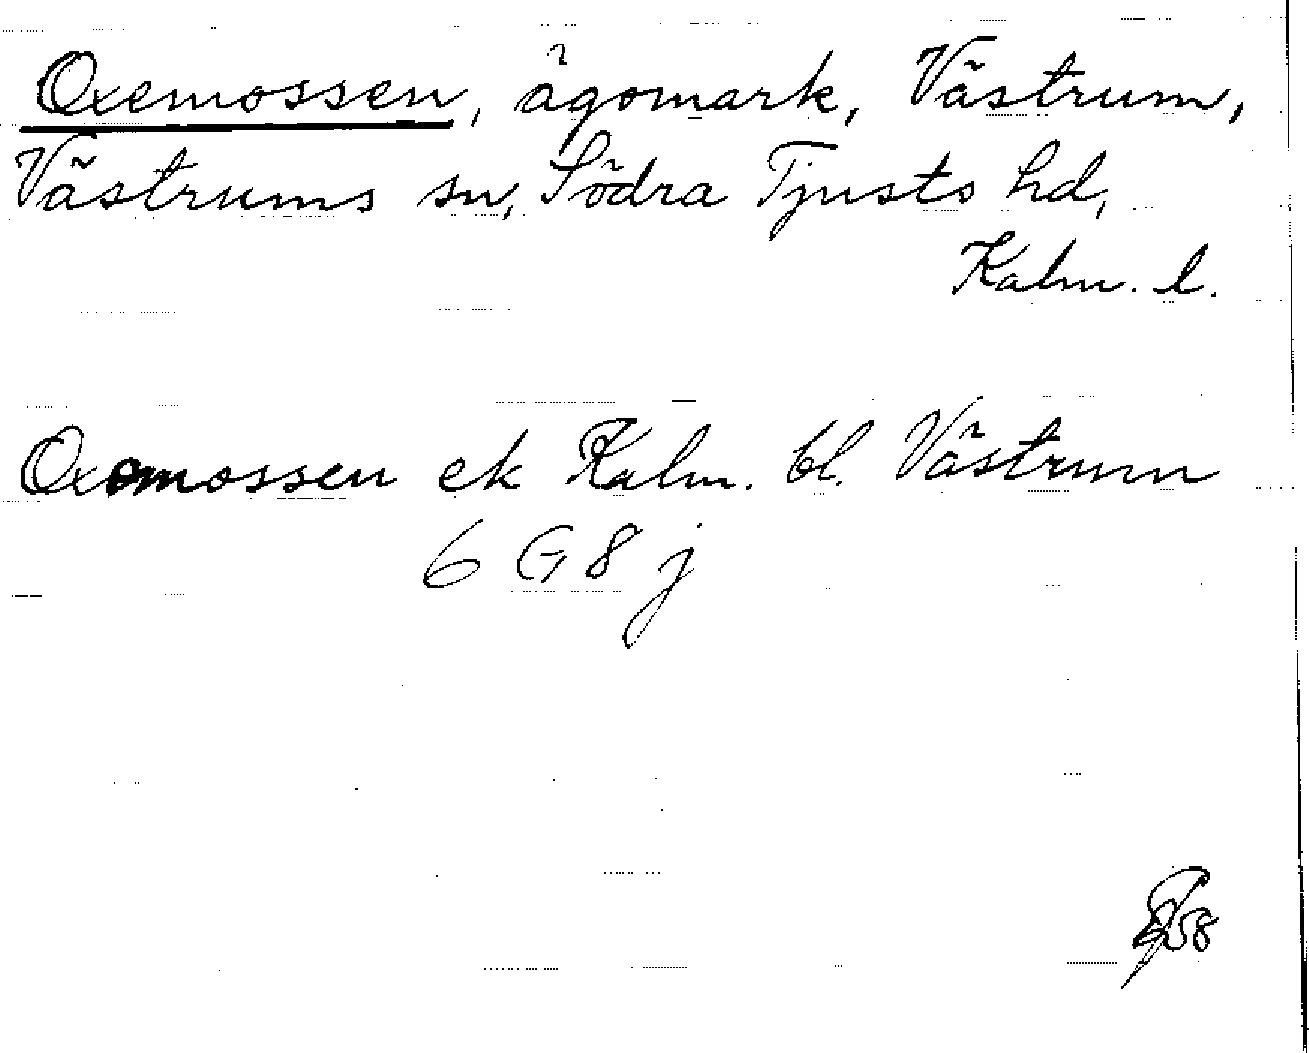 Oxemossen, ägomark, Västrum,
Västrums sn, Södra Tjusts hd,
Kalm. l.
Oxemossen ek Kalm. bl. Västrum
6 G 8 j
58